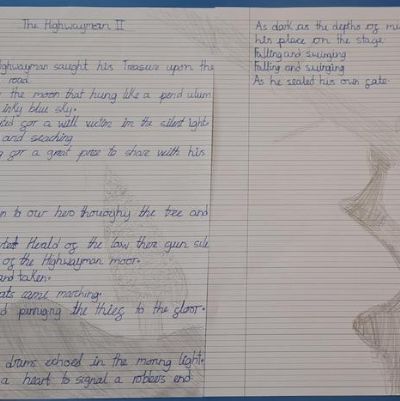 The Highwayman II
Highwayman saught his Treasure upon the
road.
the moon that hung like a pendulum
inky blue sky.
for a will victim in the silent light
and seaching
for a great prize to share with his
to our hero thouroghy the tree and
Heald of the law there gun sile
of the Highwayman moor.
and taken.
came marching.
the thief to the floor.
drums echoed in the moring light.
a heart to signal a robbers end
As dark as the depths of
his place on the stage
Falling and swinging
Falling and swinging
As he sealed his own fate.